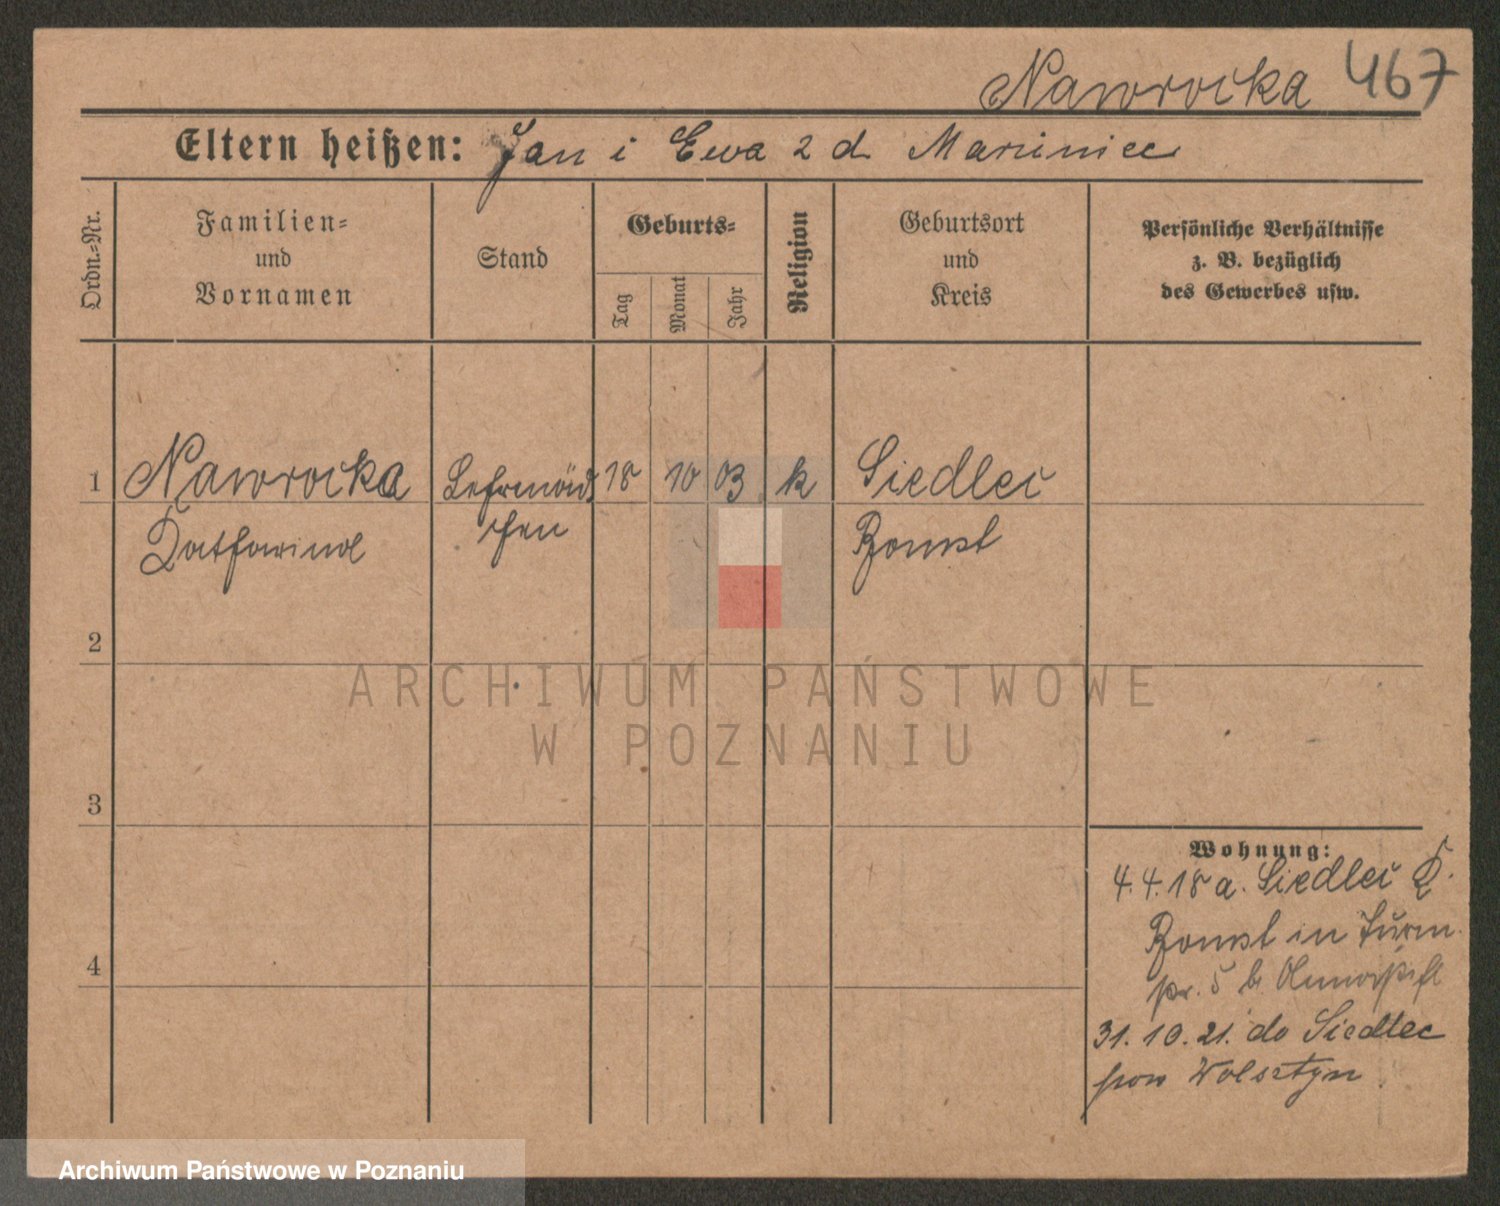 Nawrocka 467
Eltern heißen: Jan i Ewa 2 d
Ordn.-Nr.
Familien-
und
Vornamen
Stand
Geburts-
Tag
Monat
Jahr
Religion
Geburtsort
und
Kreis
Persönliche Verhältnisse
z. B. bezüglich
des Gewerbes usw.
1 Nawrocka Lehrmäd 18 10 03 k Siedlec
Katharina chen Bomst
2
3
4
Wohnung:
4. 4. 18 a. Siedlec K.
Bomst in Turm
str. 5 b.
31. 10. 21. do Siedlec
pow Wolsztyn
ARCHIWUM PAŃSTWOWE
W POZNANIU
Archiwum Państwowe w Poznaniu